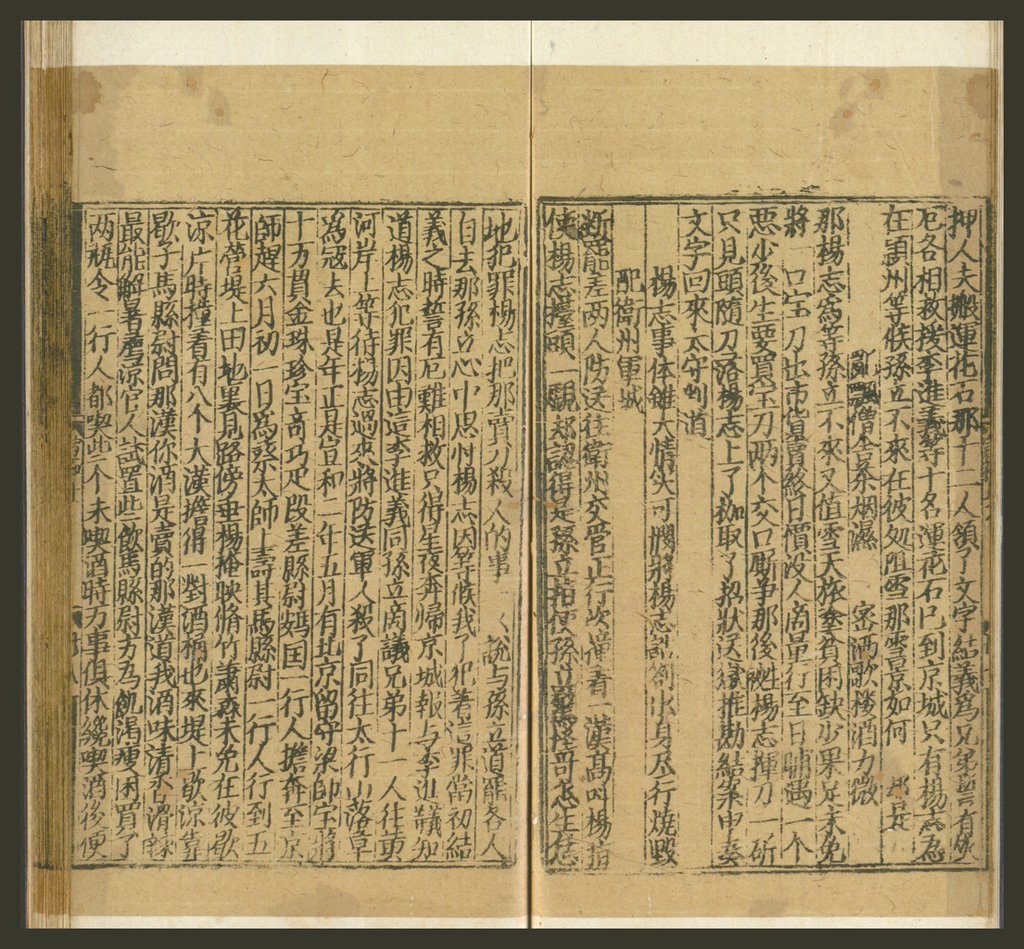 押人夫搬運花石那十二人領了文字結義爲兄弟誓有灾
厄各相救援李進義等十名運花石已到京城只有楊志爲
在潁州等候孫立不來在彼処阻雪那雪景如何　却是
亂飄僧舍茶烟濕　密洒歌楼酒力微
那楊志爲等孫立不來又值雪天旅塗貧困缺少果足未免
將一口宝刀出市貨賣終日價没人商量行至日晡遇一个
惡少後生要買宝刀两个交口厮爭那後生楊志揮刀一斫
只見頭隨刀落楊志上了枷取了招狀送獄推勘結案申奏
文字回來太守判道
楊志事体雖大情实可憫將楊志誥劄出身尽行燒毀
配衛州軍城
断罷差两人防送往衛州交管正行次撞着一漢高叫楊指
使楊志擡頭一覷却認得是孫立指使孫立驚怪哥怎生恁
地犯罪楊志把那賣刀殺人的事一一說与孫立道罷各人
自去那孫立心中思忖楊志因等候我了犯着這罪當初結
義之時誓有厄難相救只得星夜奔歸京城報与李進義知
道楊志犯罪因由這李進義同孫立商議兄弟十一人往黃
河岸上等待楊志過來將防送軍人殺了同往太行山落草
爲寇去也是年正是宣和二年五月有北京留守梁師宝將
十万貫金珠珍宝奇巧疋段差縣尉馬安国一行人擔奔至京
師趕六月初一日爲蔡太師上壽其馬縣尉一行人行到五
花营堤上田地裏見路傍垂楊掩映脩竹蕭森未免在彼歇
涼片時撞着有八个大漢擔得一對酒桶也來堤上歇涼靠
歇了馬縣尉問那漢你酒是賣的那漢道我酒味清香滑辣
最能解暑薦涼官人試置些飲馬縣尉方爲飢渴瘦困買了
两瓶令一行人都喫些个未喫酒時万事俱休纔喫酒後便